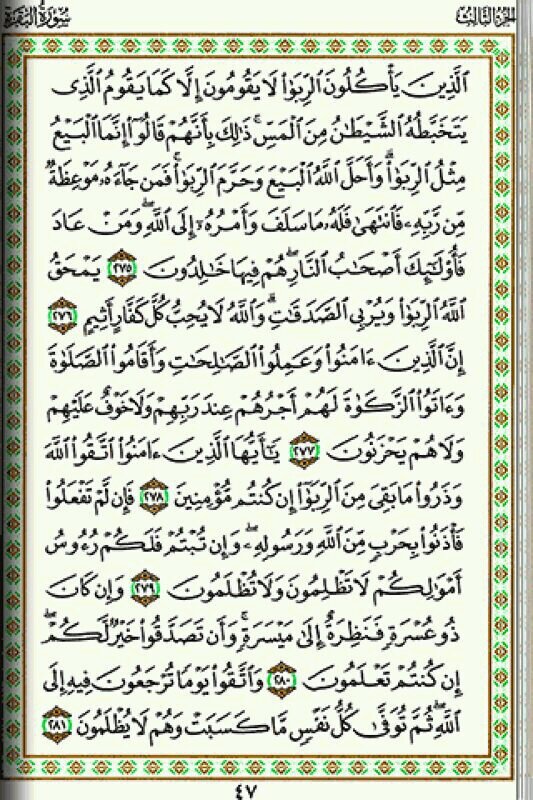 الجزء الثالث
سورة البقرة
ٱلَّذِينَ يَأۡكُلُونَ ٱلرِّبَوٰاْ لَا يَقُومُونَ إِلَّا كَمَا يَقُومُ ٱلَّذِي
يَتَخَبَّطُهُ ٱلشَّيۡطَٰنُ مِنَ ٱلۡمَسِّۚ ذَٰلِكَ بِأَنَّهُمۡ قَالُوٓاْ إِنَّمَا ٱلۡبَيۡعُ
مِثۡلُ ٱلرِّبَوٰاْۗ وَأَحَلَّ ٱللَّهُ ٱلۡبَيۡعَ وَحَرَّمَ ٱلرِّبَوٰاْۚ فَمَن جَآءَهُۥ مَوۡعِظَةٞ
مِّن رَّبِّهِۦ فَٱنتَهَىٰ فَلَهُۥ مَا سَلَفَ وَأَمۡرُهُۥٓ إِلَى ٱللَّهِۖ وَمَنۡ عَادَ
فَأُوْلَٰٓئِكَ أَصۡحَٰبُ ٱلنَّارِۖ هُمۡ فِيهَا خَٰلِدُونَ ٢٧٥ يَمۡحَقُ
ٱللَّهُ ٱلرِّبَوٰاْ وَيُرۡبِي ٱلصَّدَقَٰتِۗ وَٱللَّهُ لَا يُحِبُّ كُلَّ كَفَّارٍ أَثِيمٍ ٢٧٦
إِنَّ ٱلَّذِينَ ءَامَنُواْ وَعَمِلُواْ ٱلصَّٰلِحَٰتِ وَأَقَامُواْ ٱلصَّلَوٰةَ
وَءَاتَوُاْ ٱلزَّكَوٰةَ لَهُمۡ أَجۡرُهُمۡ عِندَ رَبِّهِمۡ وَلَا خَوۡفٌ عَلَيۡهِمۡ
وَلَا هُمۡ يَحۡزَنُونَ ٢٧٧ يَٰٓأَيُّهَا ٱلَّذِينَ ءَامَنُواْ ٱتَّقُواْ ٱللَّهَ
وَذَرُواْ مَا بَقِيَ مِنَ ٱلرِّبَوٰٓاْ إِن كُنتُم مُّؤۡمِنِينَ ٢٧٨ فَإِن لَّمۡ تَفۡعَلُواْ
فَأۡذَنُواْ بِحَرۡبٖ مِّنَ ٱللَّهِ وَرَسُولِهِۦۖ وَإِن تُبۡتُمۡ فَلَكُمۡ رُءُوسُ
أَمۡوَٰلِكُمۡ لَا تَظۡلِمُونَ وَلَا تُظۡلَمُونَ ٢٧٩ وَإِن كَانَ
ذُو عُسۡرَةٖ فَنَظِرَةٌ إِلَىٰ مَيۡسَرَةٖۚ وَأَن تَصَدَّقُواْ خَيۡرٞ لَّكُمۡ
إِن كُنتُمۡ تَعۡلَمُونَ ٢٨٠ وَٱتَّقُواْ يَوۡمٗا تُرۡجَعُونَ فِيهِ إِلَى
ٱللَّهِۖ ثُمَّ تُوَفَّىٰ كُلُّ نَفۡسٖ مَّا كَسَبَتۡ وَهُمۡ لَا يُظۡلَمُونَ ٢٨١
٤٧